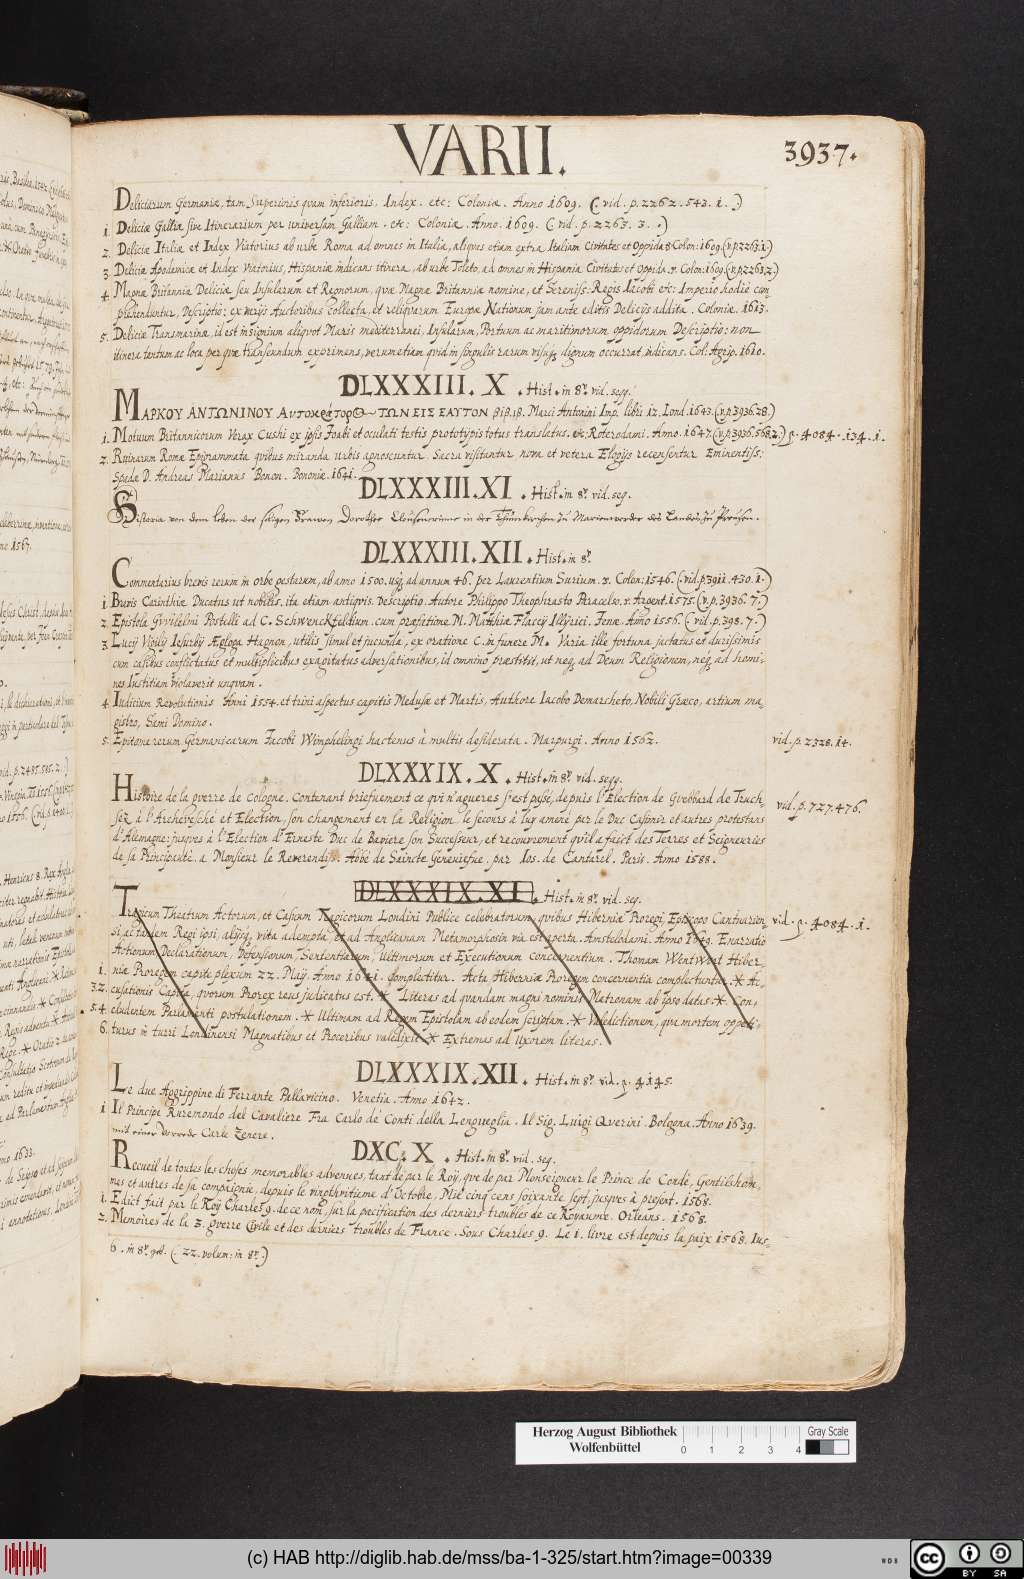 VARII.
3937.
Deliciarum Germaniæ, tam Superioris qvam inferioris, Index. etc: Coloniæ. Anno 1609. (vid. p. 2262. 543. 1.)
1. Deliciæ Galliæ sive Itinerarium per universam Galliam. etc: Coloniæ. Anno. 1609. (vid. p. 2263. 3.)
2. Deliciæ Italiæ et Index Viatorius ab urbe Roma ad omnes in Italia, aliqves etiam extra Italiam Civitates et Oppida. 8. Colon: 1609. (v. p. 2263. 1.)
3. Deliciæ Apodemicæ et Index Viatorius, Hispaniæ indicans itinera, ab urbe Toleto, ad omnes in Hispania Civitates et Oppida. v. Colon: 1609. (v. p. 2263. 2.)
4. Magnæ Britanniæ Deliciæ, seu Insularum et Regnorum, qvæ Magnæ Britanniæ nomine, et Sereniss: Regis Iacobi etc: Imperio hodiè com-
prehenduntur, Descriptio; ex varijs Auctoribus collecta, et reliqvarum Europæ Nationum jam ante editis Delicijs addita. Coloniæ. 1613.
5. Deliciæ Transmarinæ, id est insignium aliqvot Maris mediterranei, Insularum, Portuum ac maritimorum oppidorum Descriptio: non
itinera tantum ac loca per qvæ transeundum exprimens, verum etiam qvid in singulis rarum visuq; dignum occurrat, indicans. Col. Agrip. 1610.
DLXXXIII. X. Hist. in 8º. vid. seqq.
ΜΑΡΚΟΥ ΑΝΤΩΝΙΝΟΥ Αυτοκράτορος ΤΩΝ ΕΙΣ ΕΑΥΤΟΝ βιβ. ιβ. Marci Antonini Imp. libri 12. Lond. 1643. (v. p. 3936. 28.)
1. Motuum Britannicorum Verax Cushi ex ipsis Joabi et oculati testis prototypis totus translatus. etc. Roterodami. Anno. 1647. (v. p. 3936. 568. 2.) p. 4084. 134. 1.
2. Ruinarum Romæ Epigrammata qvibus miranda urbis agnoscuntur. Sacra visitantur nova et vetera Elogijs recensentur Eminentiss:
Spadæ D. Andreas Marianus Bonon. Bononiæ. 1641.
DLXXXIII. XI. Hist. in 8º. vid. seq.
Historia von dem leben der seligen Frawen Dorothee Clausenerinne in der Thumkirchen zu Marienwerder des Landes zu Preussen.
DLXXXIII. XII. Hist. in 8º.
Commentarius brevis rerum in orbe gestarum, ab anno 1500. usq; ad annum 46. per Laurentium Surium. v. Colon: 1546. (vid. p. 3911. 430. 1.)
1. Brevis Carinthiæ Ducatus ut nobilis, ita etiam antiqvis. Descriptio. Autore Philippo Theophrasto Paracelso. v. Argent. 1575. (v. p. 3936. 7.)
2. Epistola Gvvilelmi Postelli ad C. Schwenckfeldium. cum præfatione M. Matthiæ Flacij Illyrici. Jenæ. Anno 1556. (vid. p. 398. 7.)
3. Lucij Ægloga Hagnon, utilis simul et jucunda, ex oratione C. in funere M. Varia ille fortuna jactatus et durissimis
cum casibus conflictatus et multiplicibus exagitatus adversationibus, id omnino præstitit, ut neq; ad Deum Religionem, neq; ad homi-
nes Iustitiam violaverit unqvam.
4. Iudicium Revolutionis Anni 1554. et trini aspectus capitis Medusæ et Martis, Authore Iacobo Demarcheto, Nobili Græco, artium ma
gistro, Sami Domino.
5. Epitome rerum Germanicarum Jacobi Wimphelingi hactenus à multis desiderata. Marpurgi. Anno 1562. vid. p. 2328. 14.
DLXXXIX. X. Hist. in 8º. vid. seqq.
Histoire de la gverre de Cologne. Contenant briefuement ce qui n'agueres s'est passé, depuis l'Election de Guebbard de Truch-
sez à l'Archevesché et Election, son changement en la Religion, le secours à luy amené par le Duc Casimir et autres protestans vid. p. 727. 476.
d'Alemagne: jusqves à l'Election d'Erneste Duc de Baviere son Successeur, et recouvrement qu'il a faict des Terres et Seigneuries
de sa Principauté. a Monsieur le Reverendiss. Abbé de Saincte Genevefve. par Ios. de Cantarel. Paris. Anno 1588.
DLXXXIX. XI. Hist. in 8º. vid. seq.
Tragicum Theatrum Actorum, et Casuum Tragicorum Londini Publice celebratorum, qvibus Hiberniæ Proregi, Episcopo Cantuarien- vid. p. 4084. 1.
si, ac tandem Regi ipsi, alijsq; vita adempta et ad Anglicanam Metamorphosin via est aperta. Amstelodami. Anno 1649. Enarratio
Actionum Declarationum, Defensionum, Sententiarum, Ultimorum et Executionum concernentium. Thomam WentWort Hiber-
1. niæ Proregem capite plexum 22. Maij Anno 1641. Complectitur. Acta Hiberniæ Proregem concernentia complectuntur. * Ac-
3.2. cusationis Capita, qvorum Prorex reus judicatus est. * Literas ad qvandam magni nominis Matronam ab ipso datas. * Con-
5.4. cludentem Parlamenti postulationem. * Ultimam ad Regem Epistolam ab eodem scriptam. * Valedictionem, qua mortem oppeti-
6. turus in turri Londinensi Magnatibus et Proceribus valedixit. * Extremas ad Uxorem literas.
DLXXXIX. XII. Hist. in 8º. vid. p. 4145.
Le due Aggrippine di Ferrante Pallavicino. Venetia. Anno 1642.
1. Il Principe Ruremondo del Cavaliere Fra Carlo de' Conti della Lengueglia. Il Sig. Luigi Qverini. Bologna. Anno 1639.
mit einer Vorrede Carte Zenere.
DXC. X. Hist. in 8º. vid. seq.
Recueil de toutes les choses memorables advenues, tant de par le Roy, qve de par Monseigneur le Prince de Condé, Gentilshom-
mes et autres de sa compaignie, depuis le vingthvitieme d'Octobre, Mil cinq cens soixante sept, jusqves à present. 1568.
1. Edict fait par le Roy Charles 9. de ce nom, sur la pacification des derniers troubles de ce Royaume. Orleans. 1568.
2. Memoires de la 3. gverre Civile et des derniers troubles de France. Sous Charles 9. Le 1. livre est depuis la paix 1568. Ius-
6. in 8º. (22. volum: in 8º.)
Herzog August Bibliothek
Wolfenbüttel
0 1 2 3 4
Gray Scale
(c) HAB http://diglib.hab.de/mss/ba-1-325/start.htm?image=00339
WDB
cc BY SA